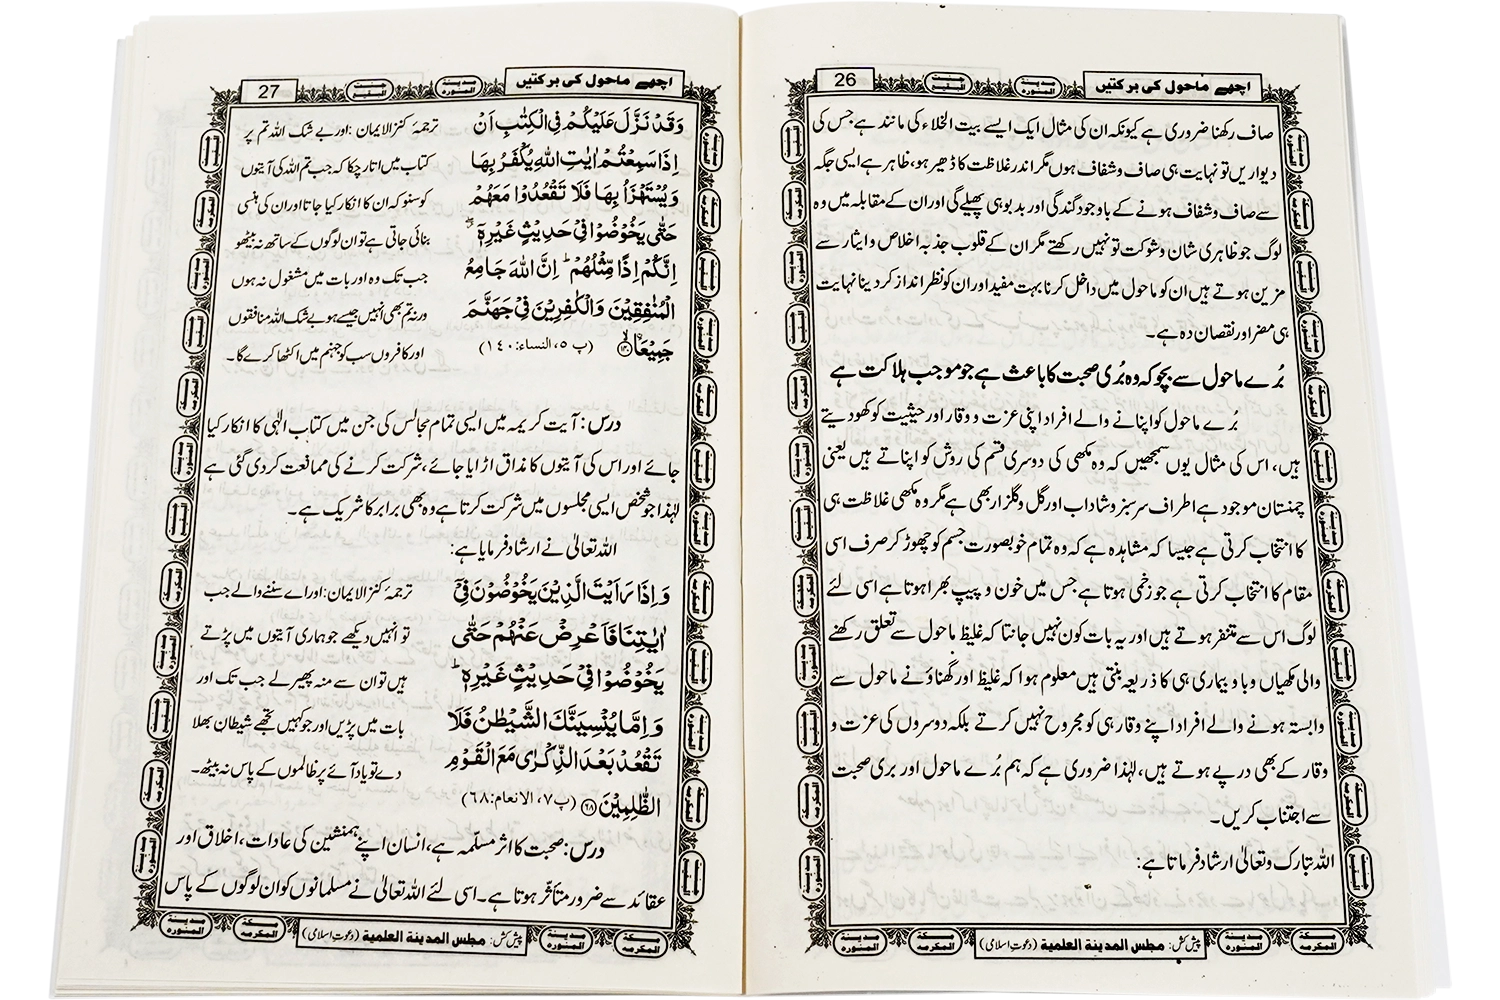 اچھے ماحول کی برکتیں
جنت البقیع
مدینة المنورہ
26
صاف رکھنا ضروری ہے کیونکہ ان کی مثال ایک ایسے بیت الخلاء کی مانند ہے جس کی
دیواریں تو نہایت ہی صاف و شفاف ہوں مگر اندر غلاظت کا ڈھیر ہو، ظاہر ہے ایسی جگہ
سے صاف و شفاف ہونے کے باوجود گندگی اور بدبو ہی پھیلے گی اور ان کے مقابلہ میں وہ
لوگ جو ظاہری شان و شوکت تو نہیں رکھتے مگر ان کے قلوب جذبہ اخلاص و ایثار سے
مزین ہوتے ہیں ان کو ماحول میں داخل کرنا بہت مفید اور ان کو نظر انداز کر دینا نہایت
ہی مضر اور نقصان دہ ہے۔
بُرے ماحول سے بچو کہ وہ بُری صحبت کا باعث ہے جو موجب ہلاکت ہے
بُرے ماحول کو اپنانے والے افراد اپنی عزت و وقار اور حیثیت کو کھو دیتے
ہیں، اس کی مثال یوں سمجھیں کہ وہ مکھی کی دوسری قسم کی روش کو اپناتے ہیں یعنی
چمنستان موجود ہے اطراف سرسبز و شاداب اور گل و گلزار بھی ہے مگر وہ مکھی غلاظت ہی
کا انتخاب کرتی ہے جیسا کہ مشاہدہ ہے کہ وہ تمام خوبصورت جسم کو چھوڑ کر صرف اسی
مقام کا انتخاب کرتی ہے جو زخمی ہوتا ہے جس میں خون و پیپ بھرا ہوتا ہے اسی لئے
لوگ اس سے متنفر ہوتے ہیں اور یہ بات کون نہیں جانتا کہ غلیظ ماحول سے تعلق رکھنے
والی مکھیاں وبا و بیماری ہی کا ذریعہ بنتی ہیں معلوم ہوا کہ غلیظ اور گھناؤنے ماحول سے
وابستہ ہونے والے افراد اپنے وقار ہی کو مجروح نہیں کرتے بلکہ دوسروں کی عزت و
وقار کے بھی درپے ہوتے ہیں، لہٰذا ضروری ہے کہ ہم بُرے ماحول اور بری صحبت
سے اجتناب کریں۔
اللہ تبارک و تعالیٰ ارشاد فرماتا ہے:
پیش کش: مجلس المدینة العلمیة (دعوتِ اسلامی)
اچھے ماحول کی برکتیں
مدینة المنورہ
جنت البقیع
27
وَقَدْ نَزَّلَ عَلَيْكُمْ فِي الْكِتٰبِ اَنْ ترجمۂ کنز الایمان: اور بے شک اللہ تم پر
اِذَا سَمِعْتُمْ اٰيٰتِ اللّٰهِ يُكْفَرُ بِهَا کتاب میں اتار چکا کہ جب تم اللہ کی آیتوں
وَيُسْتَهْزَاُ بِهَا فَلَا تَقْعُدُوْا مَعَهُمْ کو سنو کہ ان کا انکار کیا جاتا اور ان کی ہنسی
حَتّٰى يَخُوْضُوْا فِيْ حَدِيْثٍ غَيْرِهٖٓ ۖ بنائی جاتی ہے تو ان لوگوں کے ساتھ نہ بیٹھو
اِنَّكُمْ اِذًا مِّثْلُهُمْ ؕ اِنَّ اللّٰهَ جَامِعُ جب تک وہ اور بات میں مشغول نہ ہوں
الْمُنٰفِقِيْنَ وَالْكٰفِرِيْنَ فِيْ جَهَنَّمَ ورنہ تم بھی انہیں جیسے ہو بے شک اللہ منافقوں
جَمِيْعَا ۙ﴿۱۴۰﴾ (پ ۵، النساء: ۱٤۰) اور کافروں سب کو جہنم میں اکٹھا کرے گا۔
درس: آیت کریمہ میں ایسی تمام مجالس کی جن میں کتاب الٰہی کا انکار کیا
جائے اور اس کی آیتوں کا مذاق اڑایا جائے، شرکت کرنے کی ممانعت کر دی گئی ہے
لہٰذا جو شخص ایسی مجلسوں میں شرکت کرتا ہے وہ بھی برابر کا شریک ہے۔
اللہ تعالیٰ نے ارشاد فرمایا ہے:
وَاِذَا رَاَيْتَ الَّذِيْنَ يَخُوْضُوْنَ فِيْٓ ترجمۂ کنز الایمان: اور اے سننے والے جب
اٰيٰتِنَا فَاَعْرِضْ عَنْهُمْ حَتّٰى تو انہیں دیکھے جو ہماری آیتوں میں پڑتے
يَخُوْضُوْا فِيْ حَدِيْثٍ غَيْرِهٖ ؕ ہیں تو ان سے منہ پھیر لے جب تک اور
وَاِمَّا يُنْسِيَنَّكَ الشَّيْطٰنُ فَلَا بات میں پڑیں اور جو کہیں تجھے شیطان بھلا
تَقْعُدْ بَعْدَ الذِّكْرٰى مَعَ الْقَوْمِ دے تو یاد آئے پر ظالموں کے پاس نہ بیٹھ۔
الظّٰلِمِيْنَ ﴿۶۸﴾ (پ ۷، الانعام: ٦٨)
درس: صحبت کا اثر مسلّمہ ہے، انسان اپنے ہمنشین کی عادات، اخلاق اور
عقائد سے ضرور متأثر ہوتا ہے۔ اسی لئے اللہ تعالیٰ نے مسلمانوں کو ان لوگوں کے پاس
پیش کش: مجلس المدینة العلمیة (دعوتِ اسلامی)